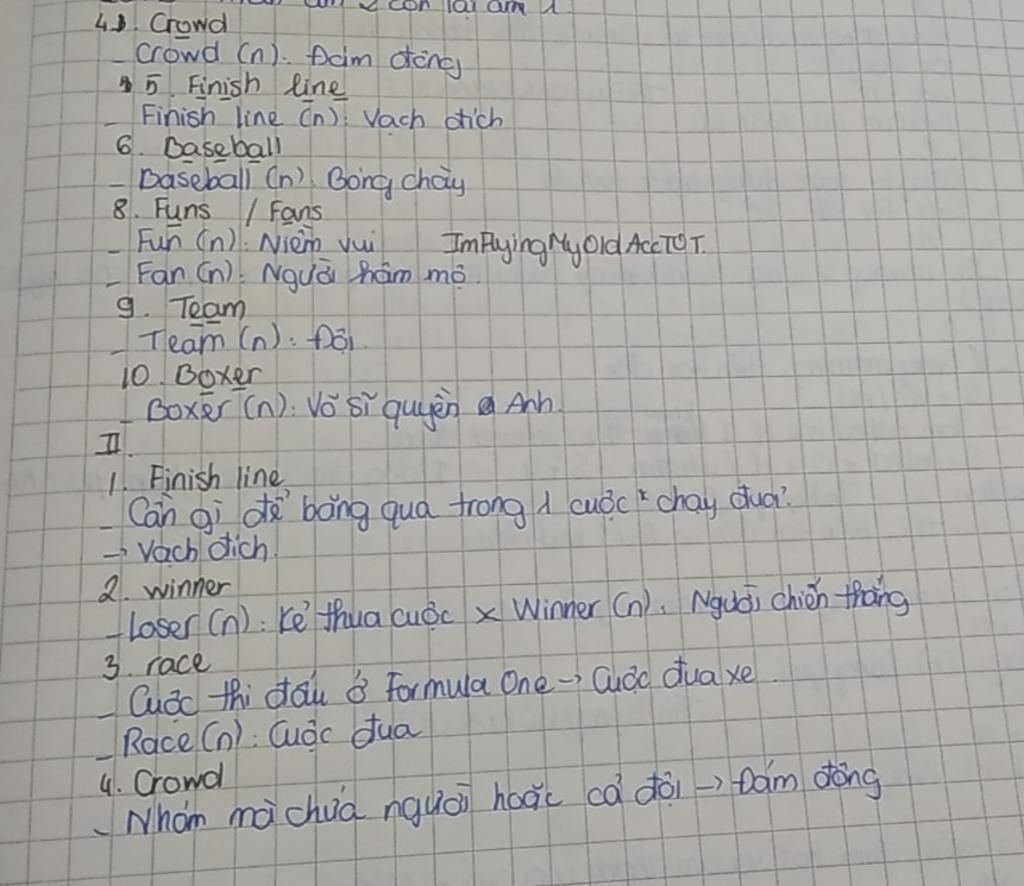 còn lại âm 1
4. Crowd
- Crowd (n): Đám đông
5. Finish line
- Finish line (n): Vạch đích
6. Baseball
- Baseball (n): Bóng chày
8. Funs / Fans
- Fun (n): Niềm vui ImPlyingMyOldAccTOT.
- Fan (n): Người hâm mộ.
9. Team
- Team (n): Đội.
10. Boxer
- Boxer (n): Võ sĩ quyền Anh.
II.
1. Finish line
- Cần gì để băng qua trong 1 cuộc "chạy đua".
→ Vạch đích.
2. winner
- Loser (n): Kẻ thua cuộc x Winner (n): Người chiến thắng
3. race
- Cuộc thi đấu ở Formula One → Cuộc đua xe.
- Race (n): Cuộc đua
4. Crowd
- Nhóm mà chứa người hoặc cả đội → Đám đông